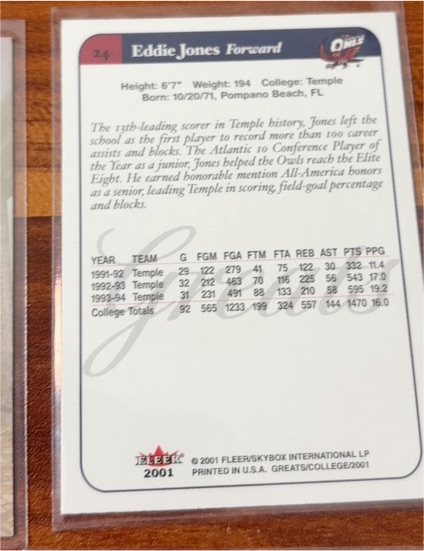 24 Eddie Jones Forward OWLS
Height: 6'7" Weight: 194 College: Temple
Born: 10/20/71, Pompano Beach, FL
The 13th-leading scorer in Temple history, Jones left the
school as the first player to record more than 100 career
assists and blocks. The Atlantic 10 Conference Player of
the Year as a junior, Jones helped the Owls reach the Elite
Eight. He earned honorable mention All-America honors
as a senior, leading Temple in scoring, field-goal percentage
and blocks.
Greats
YEAR TEAM G FGM FGA FTM FTA REB AST PTS PPG
1991-92 Temple 29 122 279 41 75 122 30 332 11.4
1992-93 Temple 32 212 463 70 116 225 56 543 17.0
1993-94 Temple 31 231 491 88 133 210 58 595 19.2
College Totals 92 565 1233 199 324 557 144 1470 16.0
FLEER
2001
© 2001 FLEER/SKYBOX INTERNATIONAL LP
PRINTED IN U.S.A. GREATS/COLLEGE/2001